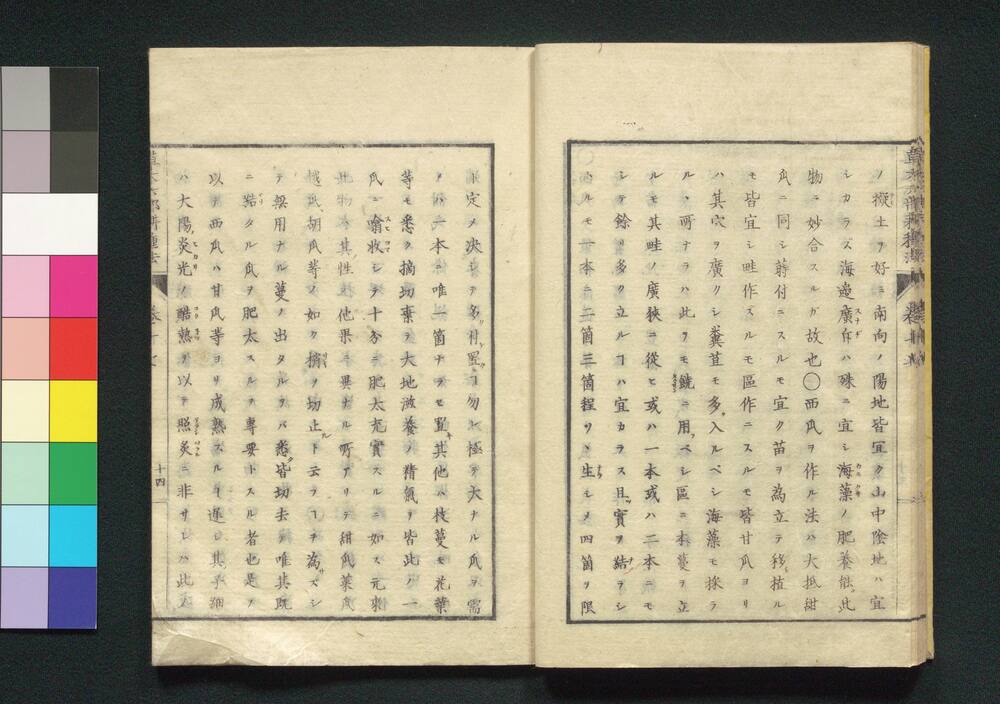 ノ擬土ヲ好ミ南向ノ陽地皆宜ク山中陰地ハ宜
シカラズ海邊廣斥ハ殊ニ宜シ海藻ノ肥養能此
物ニ妙合スルガ故也〇西瓜ヲ作ル法ハ大抵甜
瓜ニ同シ蒔付ニスルモ宜ク苗ヲ為立テ移植ル
モ皆宜シ畦作スルモ區作ニスルモ皆甘瓜ヨリ
ハ其穴ヲ廣クシ糞苴モ多ク入ルベシ海藻モ採ラ
ル、所ナラハ此ヲモ饒ニ用フベシ區ニ本蔓ヲ立
ルモ其畦ノ廣狹ニ從ヒ或ハ一本或ハ二本ニモ
シテ餘リ多ク立ルコハ宜カラス且ツ實ヲ結テシ
ルモ一本ニ二箇三箇程リヽ生シメ四箇ヲ限
定メ決シテ多ク付置コ勿レ極テ大ナル瓜ヲ需
ハ一本ニ唯一箇ヲセ置キ其他ハ枝蔓モ花葉
等モ悉ク摘切棄テ大地滋養ノ精氣ヲ皆此ノ一
瓜ニ噏收シテ十分ニ肥太充實スルニ如ス元來
此物ハ其性他果ニ異ナル所アリテ甜瓜菜瓜
越瓜胡瓜等ノ如ク梢ヲ切止ト云フコヲ為サズシ
テ無用ナル蔓ノ出タルヲバ悉皆切去テ唯其既
ニ結タル瓜ヲ肥太スルヲ專要トスル者也是ヲ
以テ西瓜ハ甘瓜等ヨリ成熟スルコ遅シ其
ハ大陽炎光ノ酷熟ヲ以テ照炙ニ非サレハ此
十四